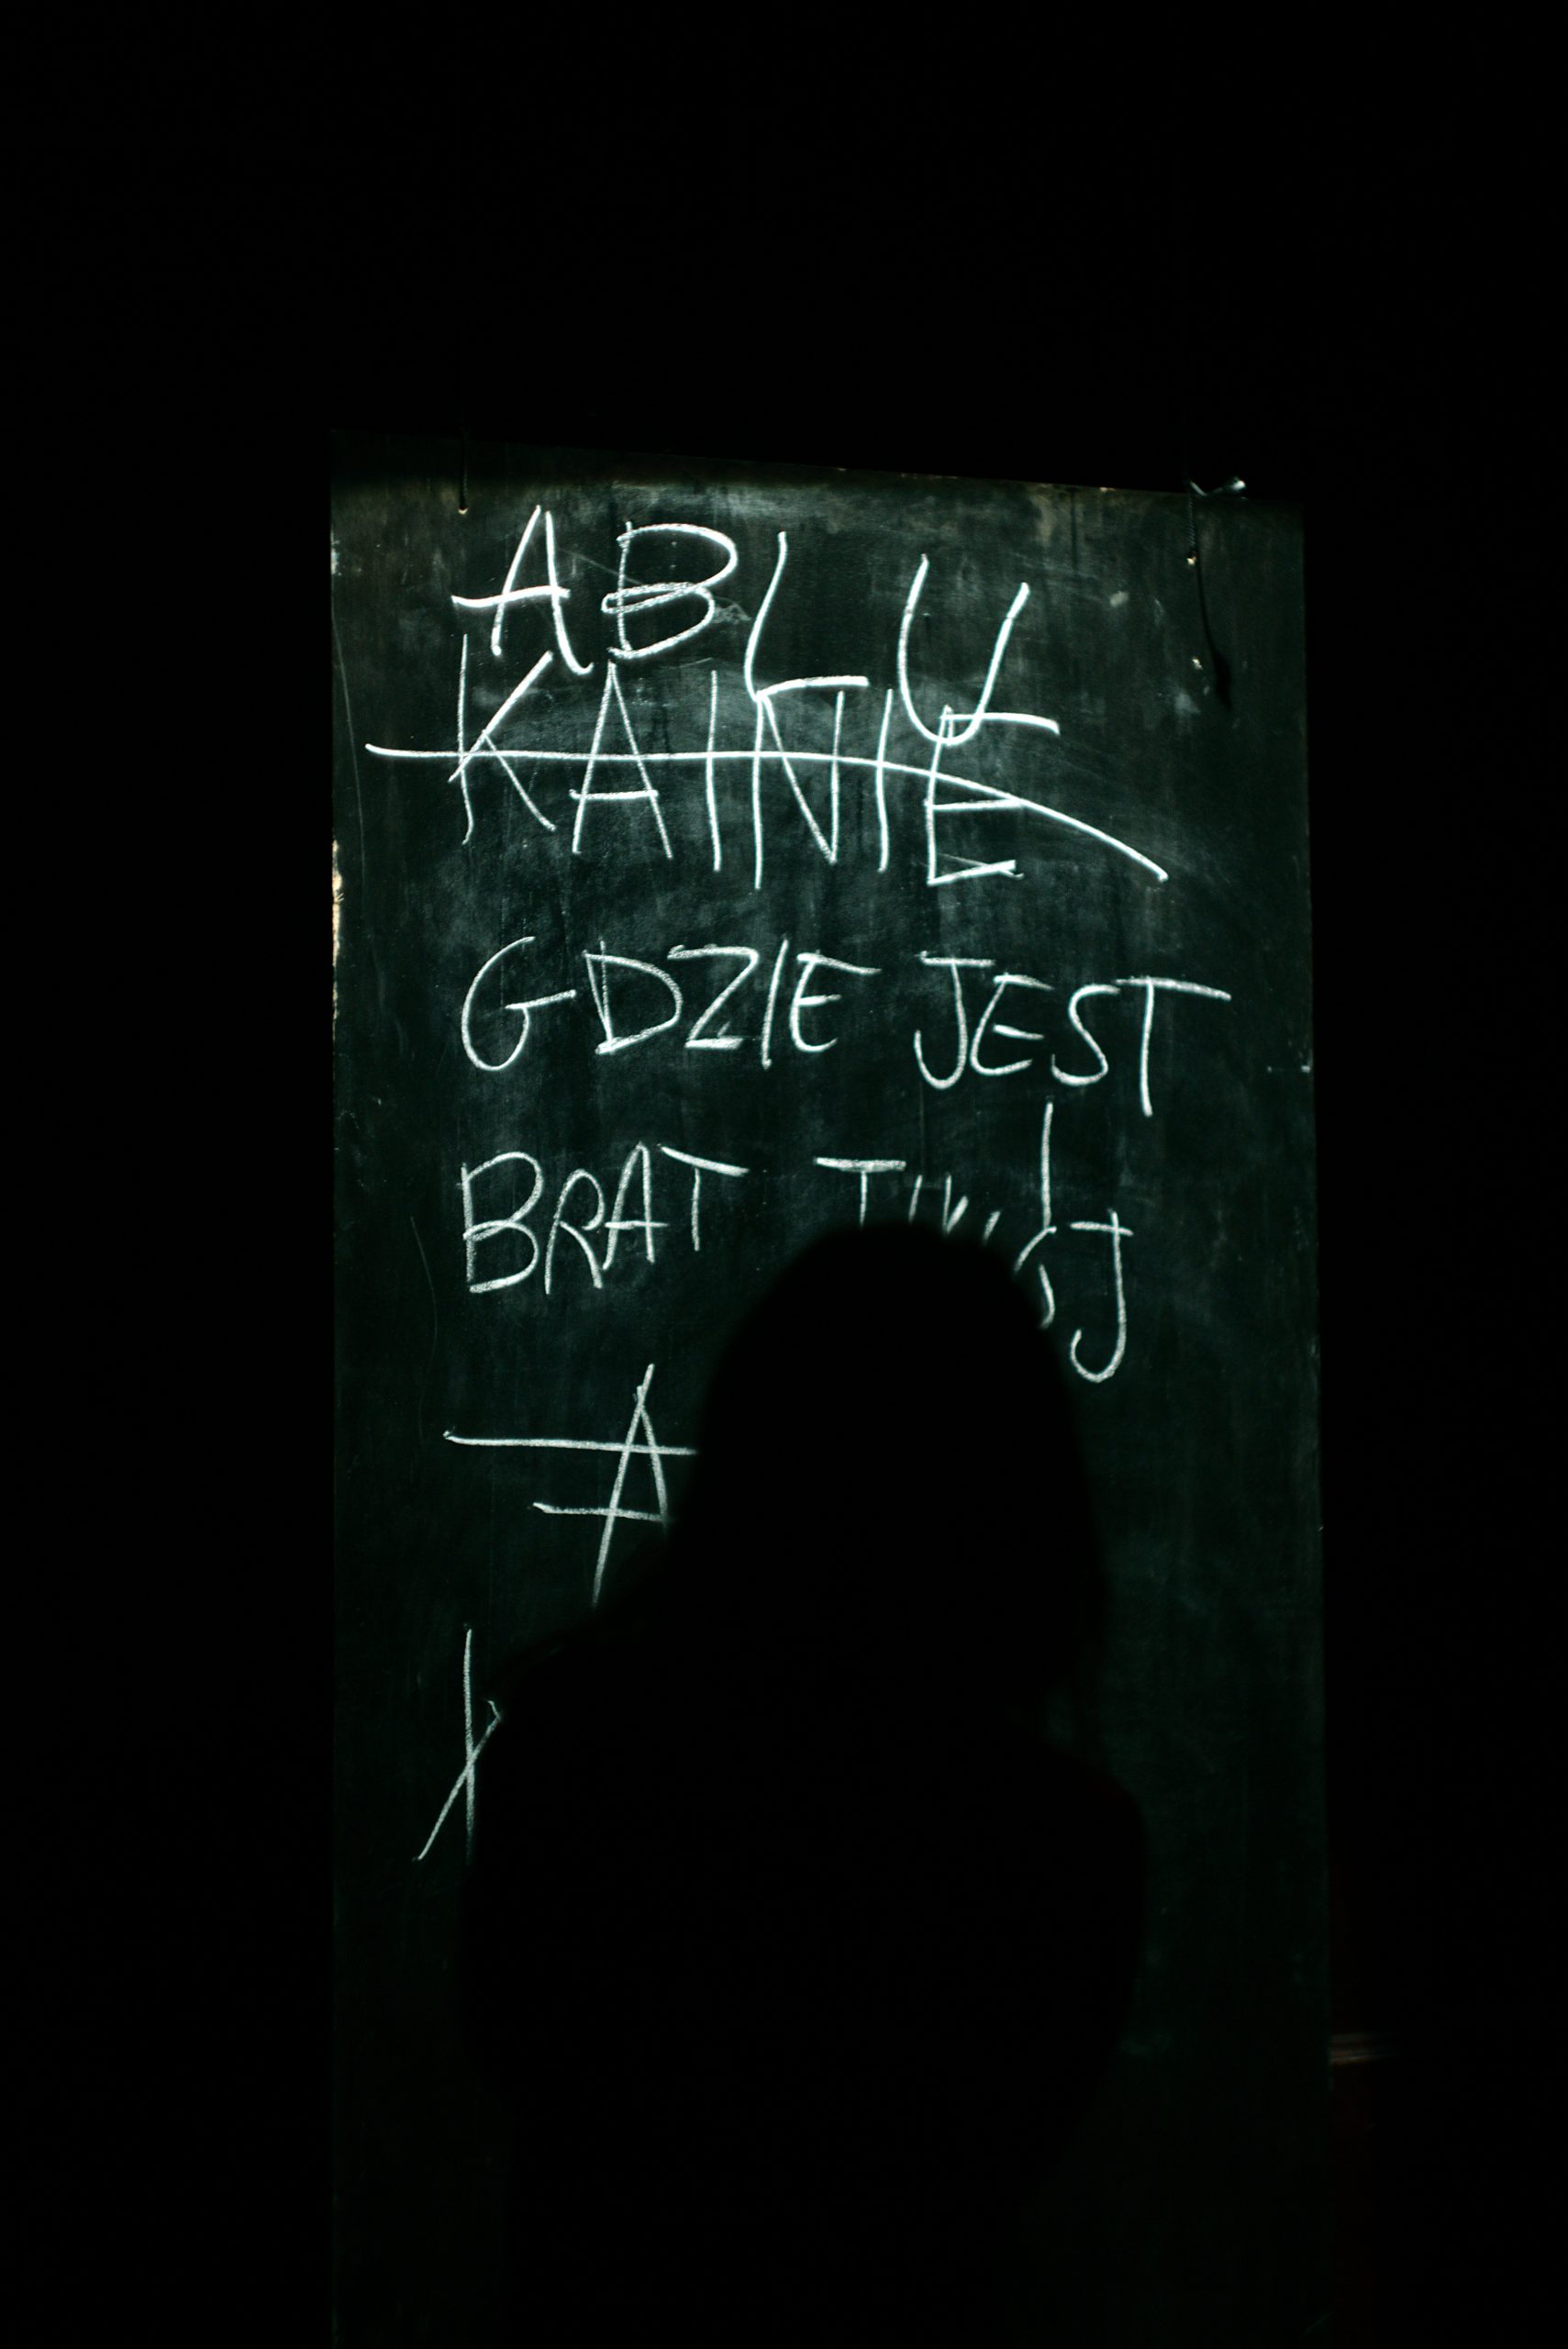 ABLU
KAINIE
GDZIE JEST
BRAT
A